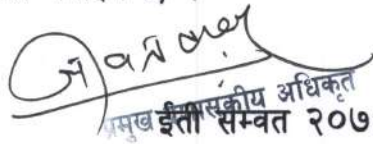 प्रमुख प्रशासकीय अधिकृत
ईती सम्वत २०७